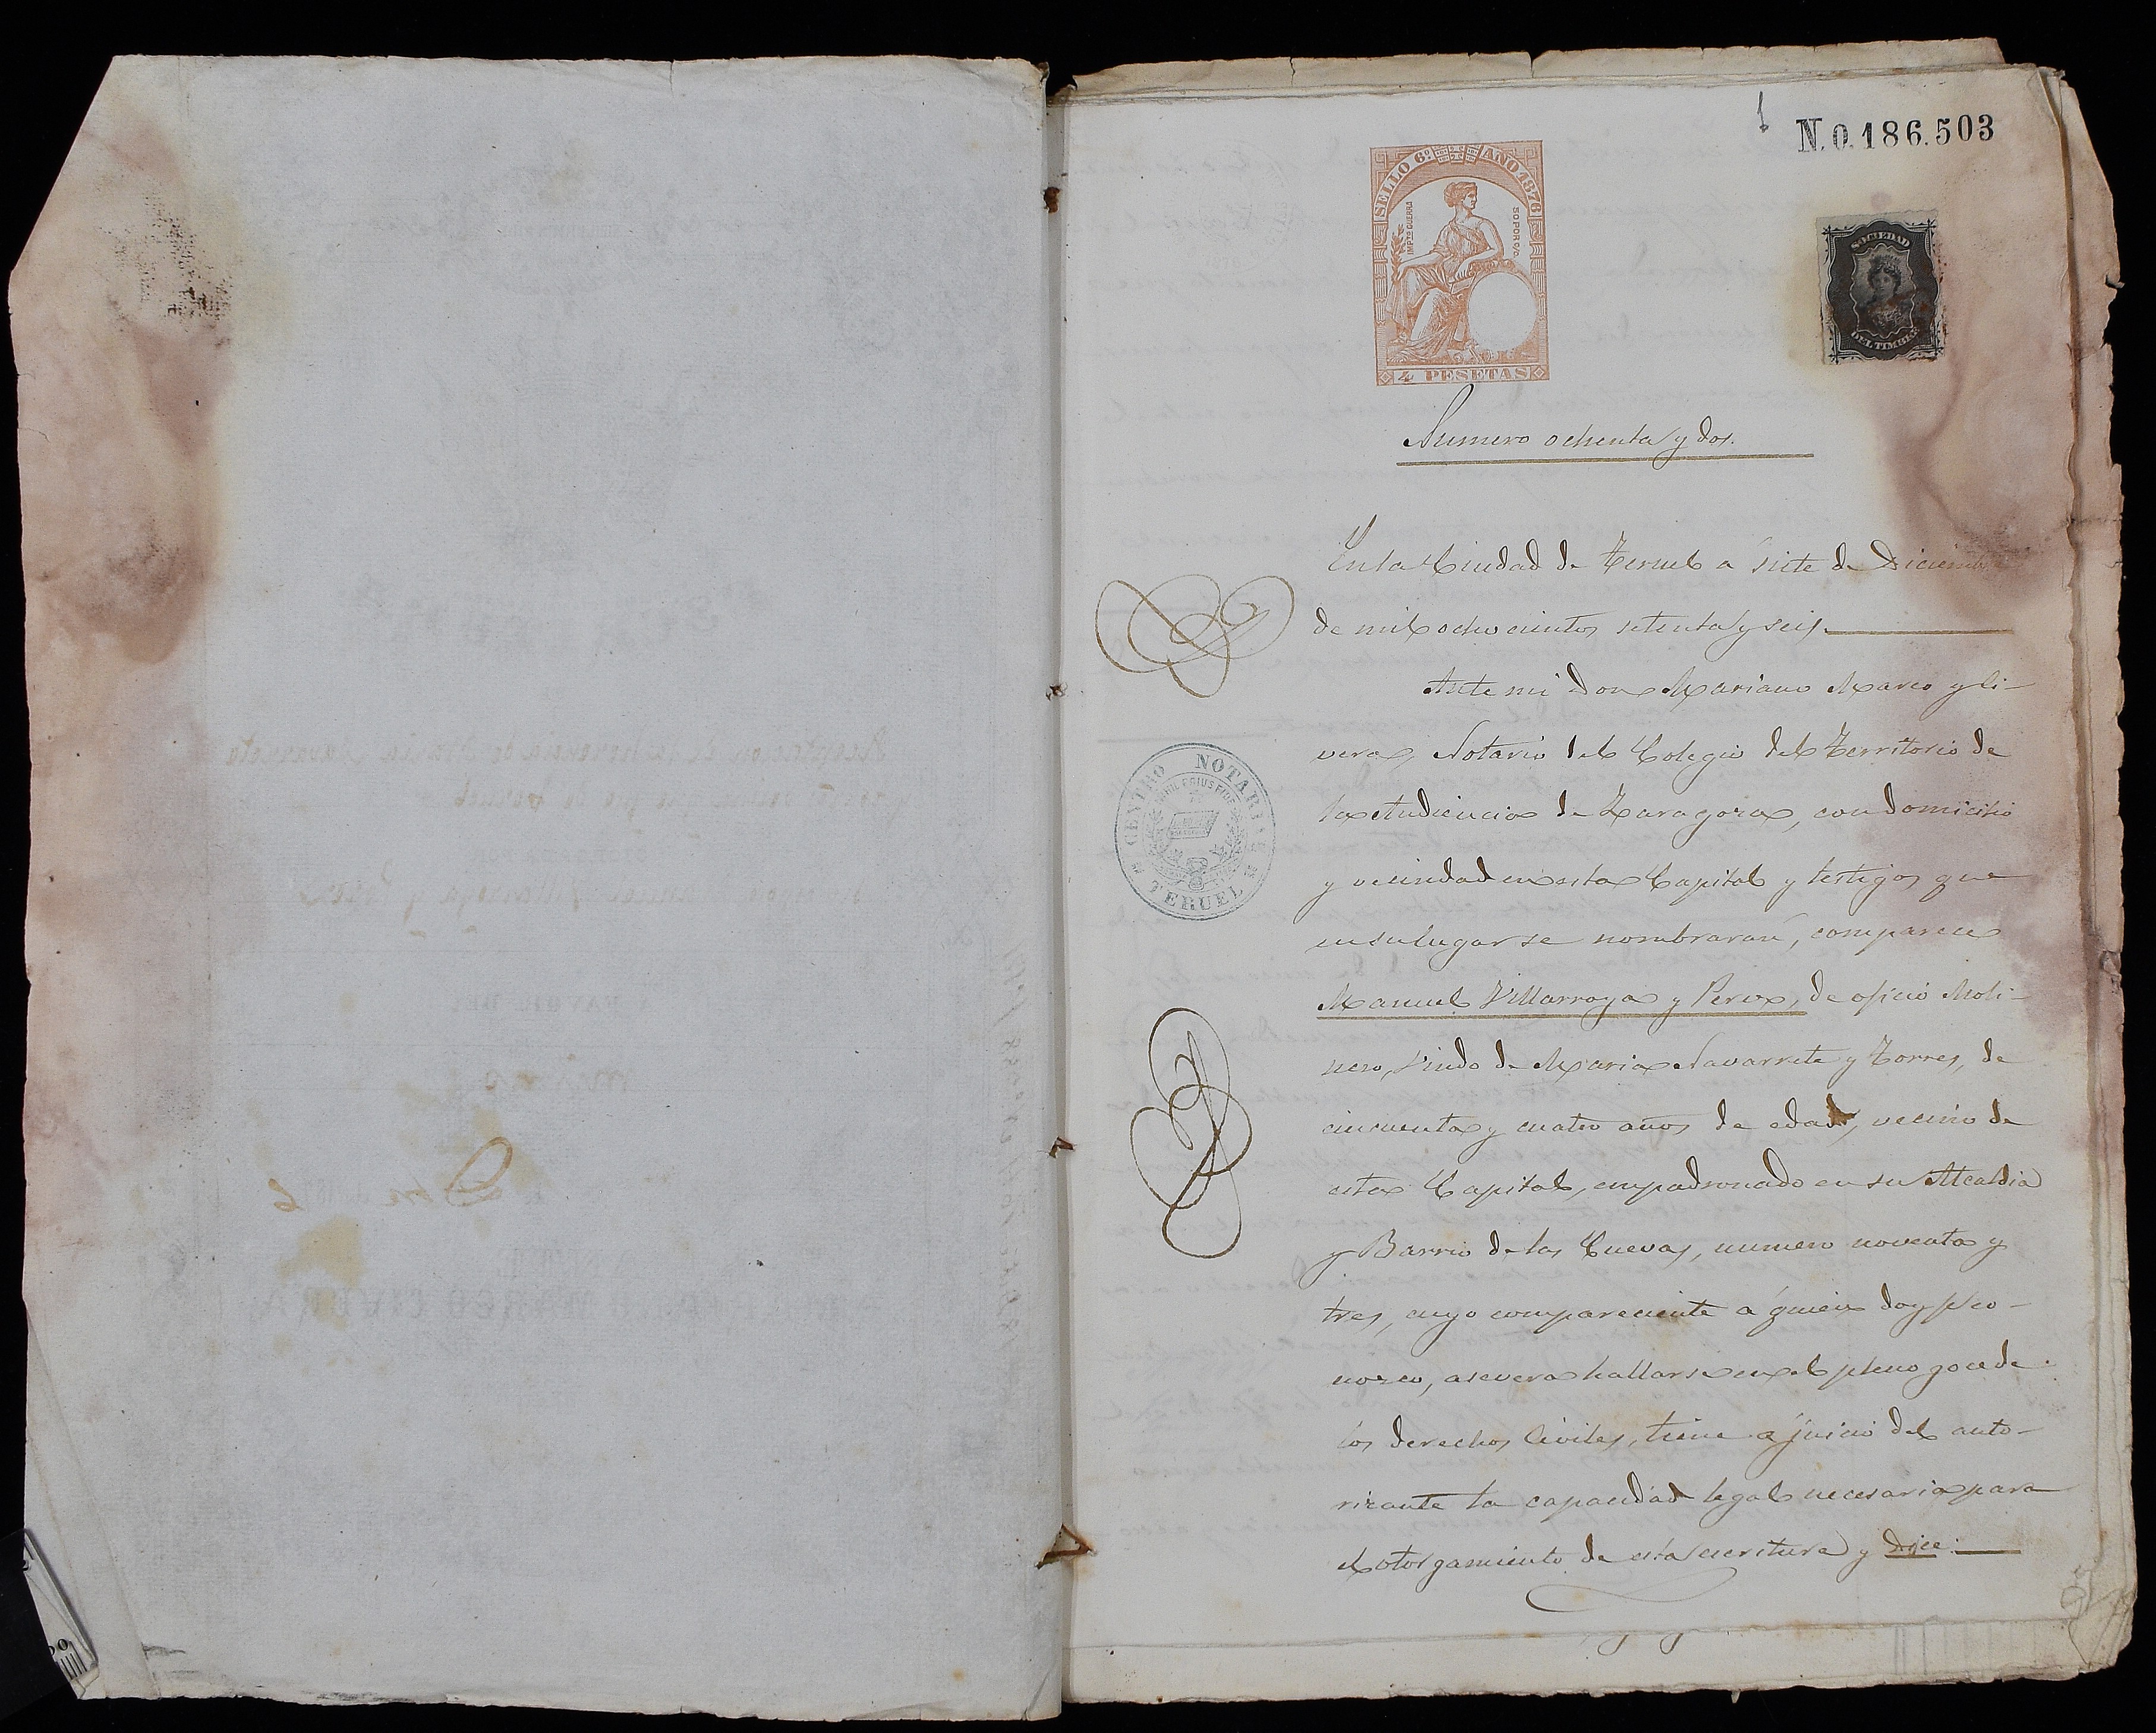 1
N.0.186.503
SELLO 6º AÑO 1876
IMPTO GUERRA
50 POR 0/0
4 PESETAS
SOCIEDAD
DEL TIMBRE
Numero ochenta y dos.
En la Ciudad de Teruel a siete de Diciembre
de mil ochocientos setenta y seis.
Ante mi don Mariano Marco y Ci-
vera, Notario del Colegio del Territorio de
la Audiencia de Zaragoza, con domicilio
y vecindad en esta Capital y testigos que
en su lugar se nombraran, comparece
Manuel Villarroya y Perez, de oficio Moli-
nero, Viudo de Maria Navarrete y Torres, de
cincuenta y cuatro años de edad, vecino de
esta Capital, empadronado en su Alcaldia
y Barrio de las Cuevas, numero noventa y
tres, cuyo compareciente a quien doy fe co-
nozco, asevera hallarse en el pleno goce de
los derechos Civiles, tiene a juicio del auto-
rizante la capacidad legal necesaria para
el otorgamiento de esta escritura y dice:
CENTRO NOTARIAL
TERUEL